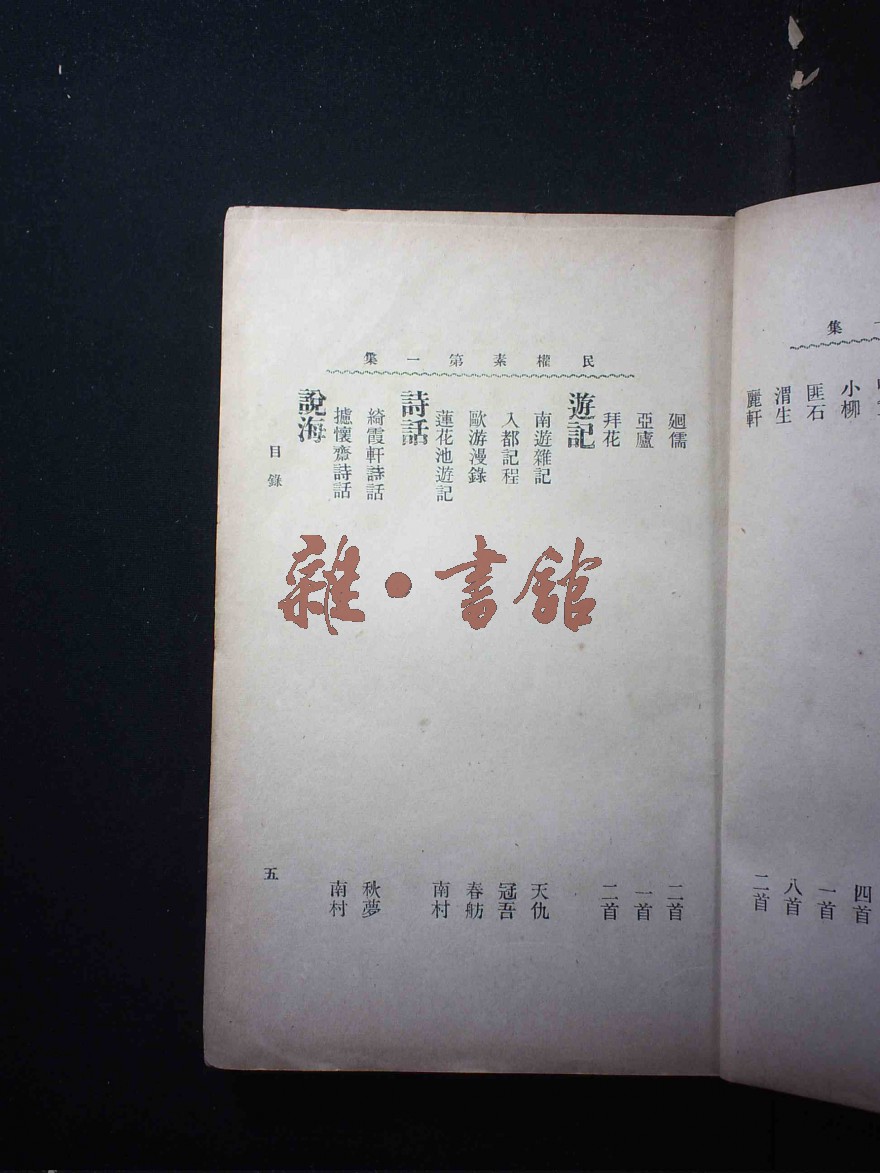 集
小柳 四首
匪石 一首
渭生 八首
麗軒 二首
民權素第一集
廻儒 二首
亞廬 一首
拜花 二首
遊記
南遊雜記 天仇
入都記程 冠吾
歐游漫錄 春舫
蓮花池遊記 南村
詩話
綺霞軒詩話 秋夢
攄懷齋詩話 南村
說海
目錄 五
雜·書館